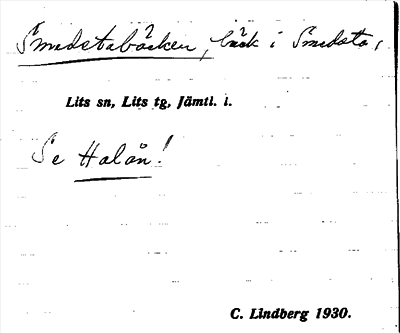 Smedstabäcken, bäck i Smedsta,
Lits sn, Lits tg, Jämtl. l.
Se Halån!
C. Lindberg 1930.